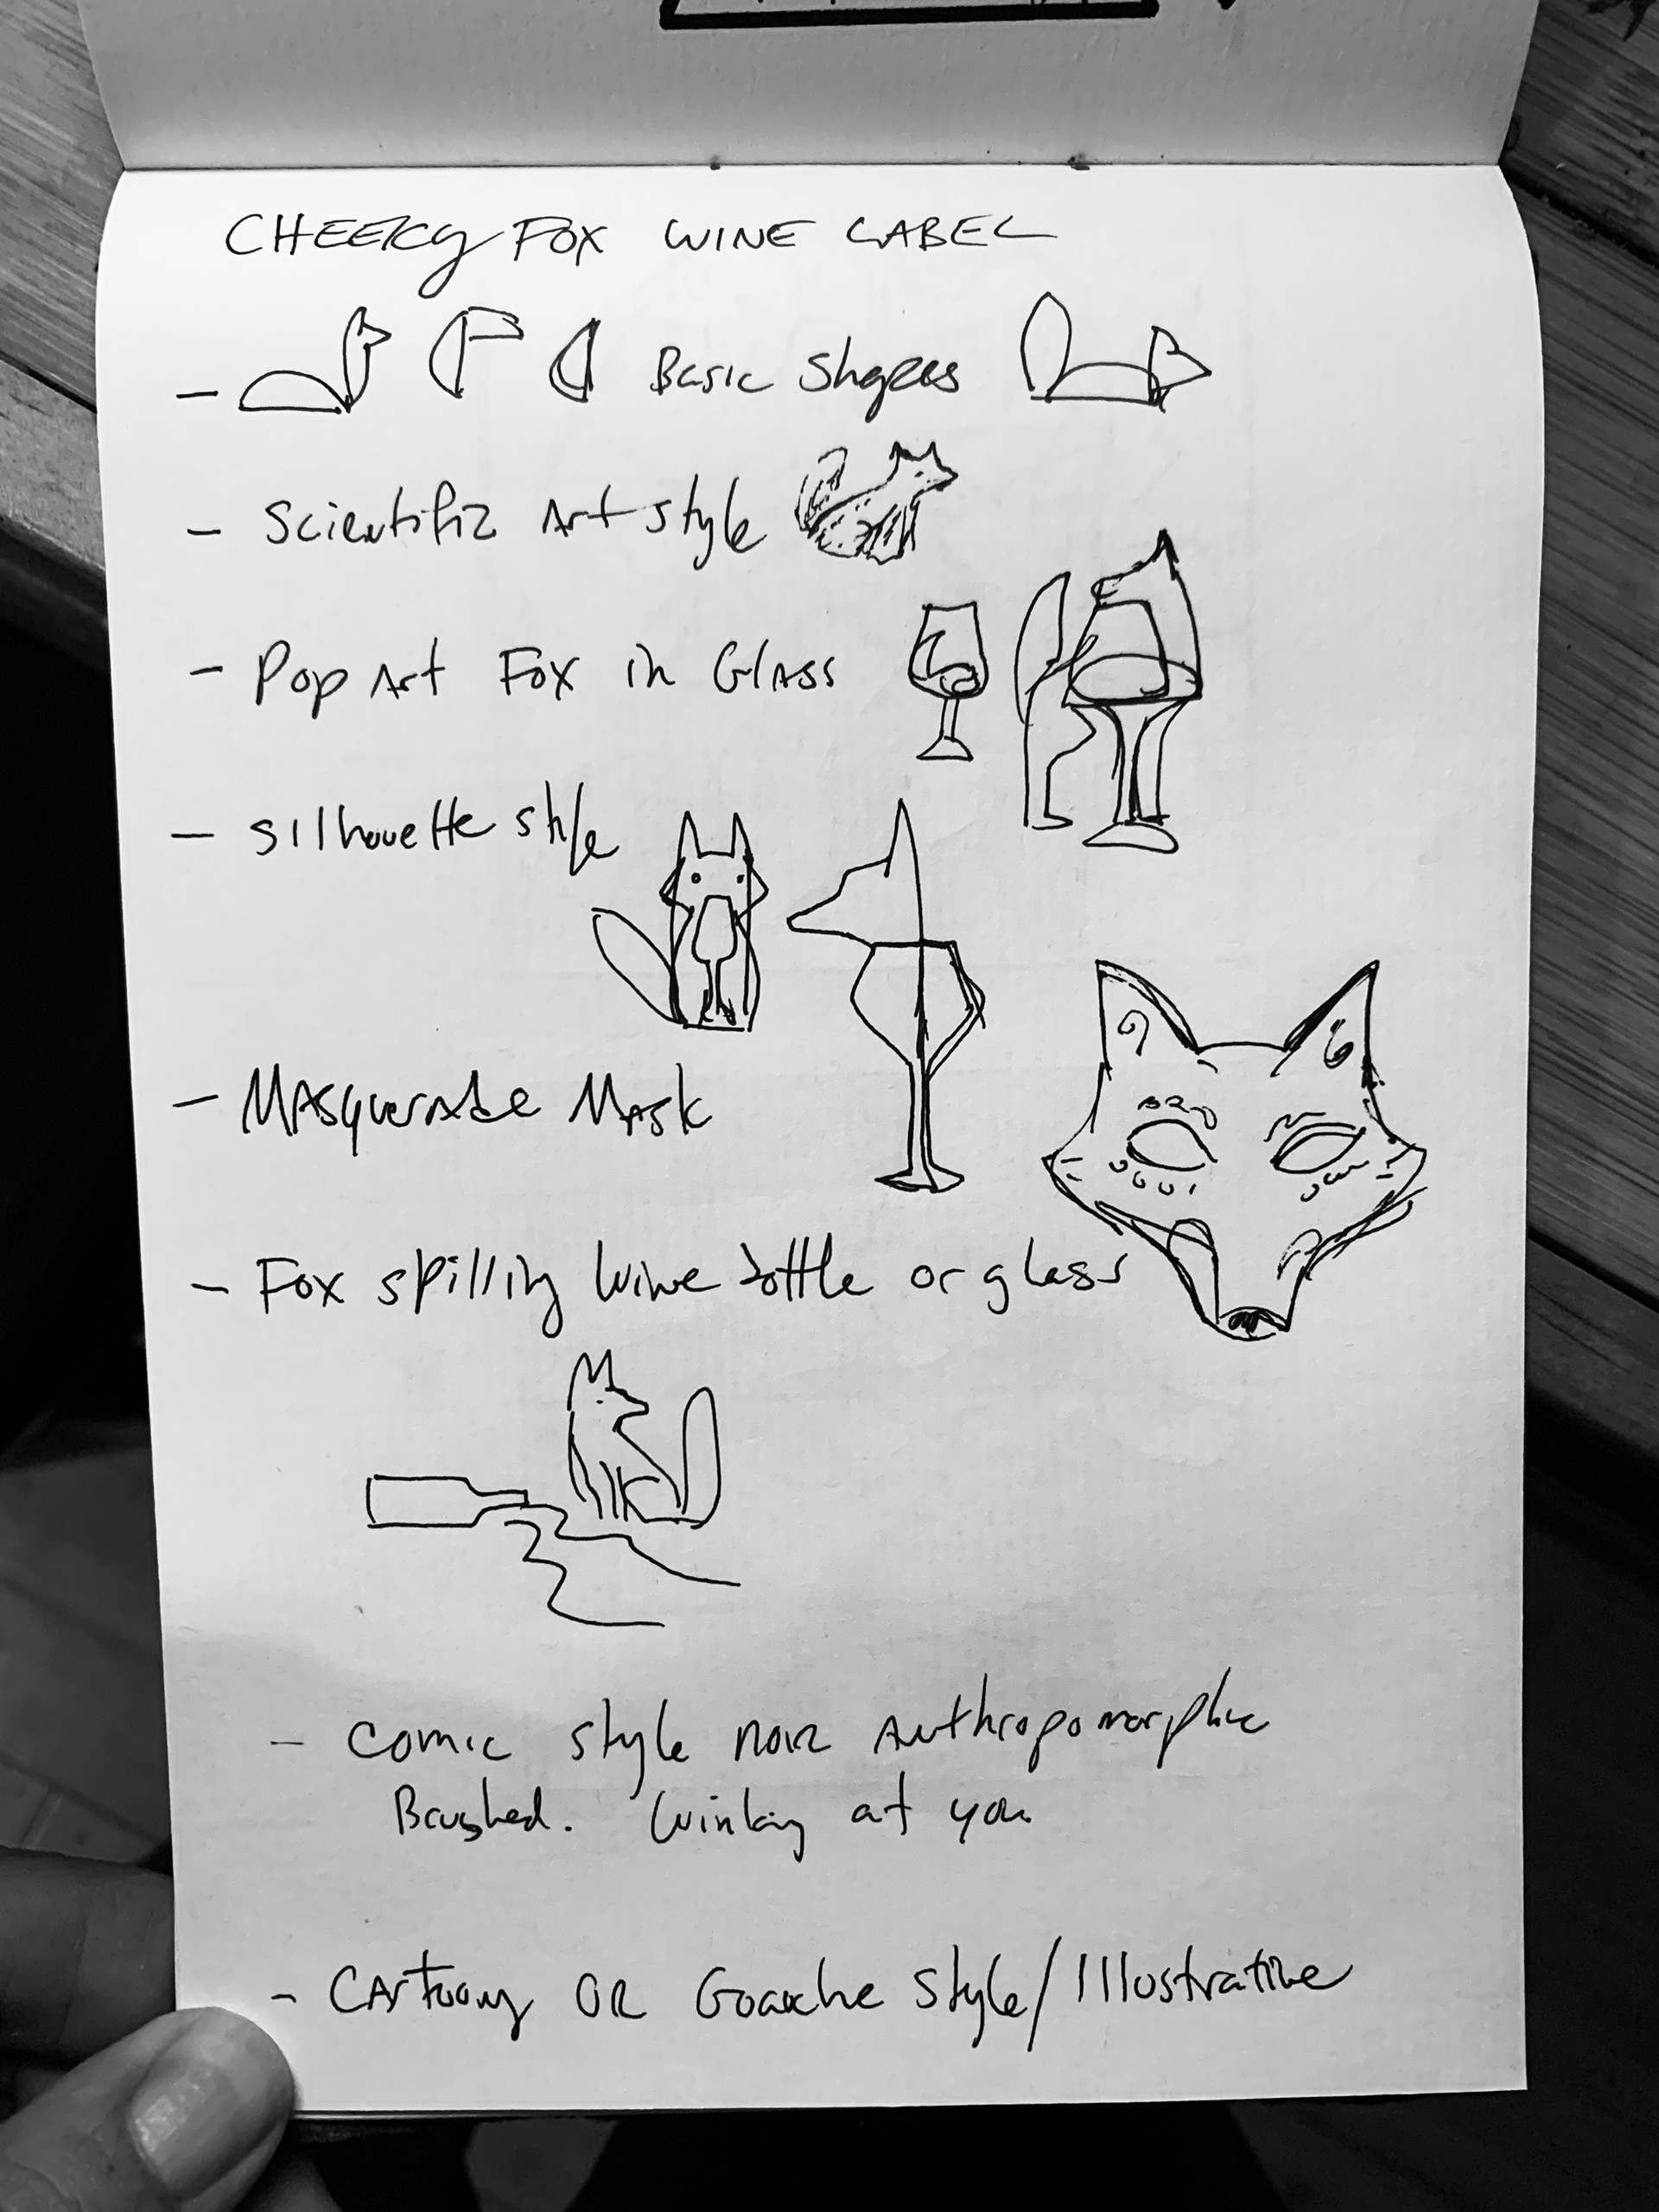 CHEEKY FOX WINE LABEL
- Basic Shapes
- Scientific Art Style
- Pop Art Fox in Glass
- Silhouette style
- Masquerade Mask
- Fox spilling wine bottle or glass
- Comic style noir Anthropomorphic
Brushed. Winking at you
- Cartoony OR Gouache Style/Illustrative